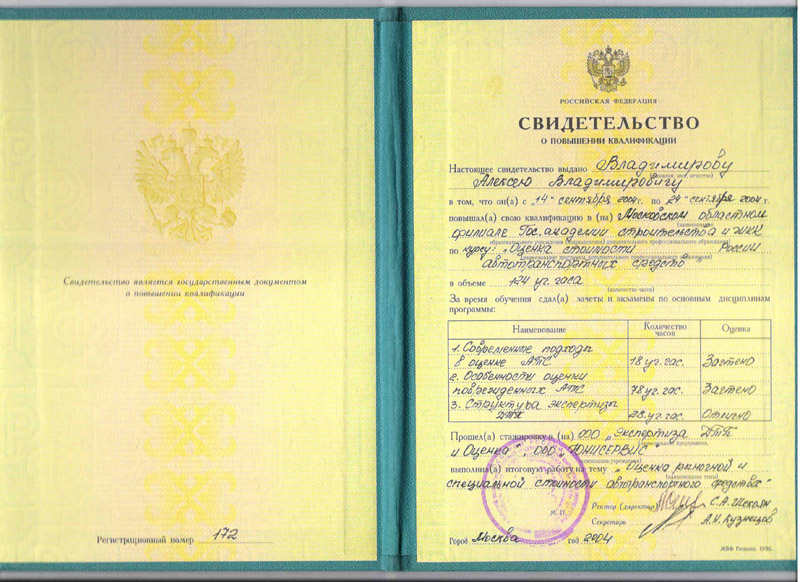 Свидетельство является государственным документом
о повышении квалификации
Регистрационный номер 172
РОССИЙСКАЯ ФЕДЕРАЦИЯ
СВИДЕТЕЛЬСТВО
О ПОВЫШЕНИИ КВАЛИФИКАЦИИ
Настоящее свидетельство выдано Владимирову
(фамилия, имя, отчество)
Алексею Владимировичу
в том, что он(а) с "14" сентября 2004г. по "24" сентября 2004 г.
повышал(а) свою квалификацию в (на) Московском областном
(наименование)
филиале Гос. академии строительства и ЖКК
образовательного учреждения (подразделения) дополнительного профессионального образования)
по курсу: "Оценка стоимости России
(наименование программы дополнительного профессионального образования)
автотранспортных средств"
в объеме 124 уч. часа
(количество часов)
За время обучения сдал(а) зачеты и экзамены по основным дисциплинам
программы:
Наименование Количество часов Оценка
1. Современные подходы
в оценке АТС 18 уч. час. Зачтено
2. Особенности оценки
поврежденных АТС 78 уч. час. Зачтено
3. Структура экспертизы
ДТП 28 уч. час. Отлично
Прошел(а) стажировку в (на) ООО "Экспертиза ДТП
(наименование предприятия,
и Оценка", ООО "ЮНИСЕРВИС"
организации, учреждения)
выполнил(а) итоговую работу на тему "Оценка рыночной и
(наименование темы)
специальной стоимости автотранспортного средства"
М. П.
Ректор (директор) С.А. Шекоян
Секретарь А.Н. Кузнецов
Город Москва год 2004